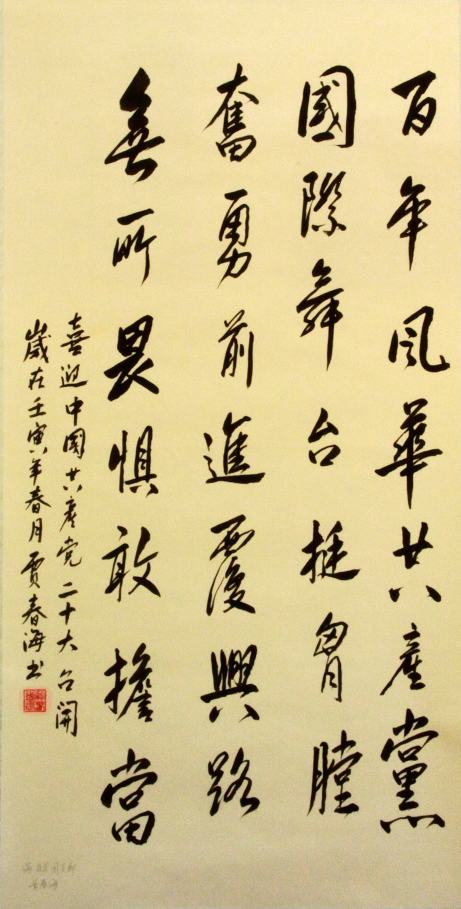 百年風華共產黨
國際舞台挺胷膛
奮勇前進覆興路
無所畏惧敢擔當
喜迎中國共產党二十大召開
歲在壬寅年春月賈春海书